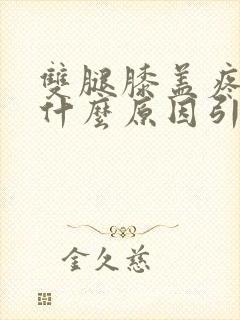 雙腿膝盖疼
什麼原因引
金久慈